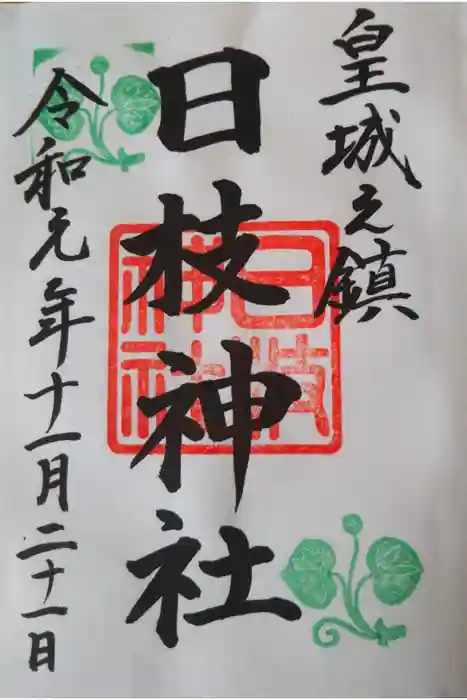 皇城之鎮
日枝神社
日枝神社
令和元年十一月二十一日